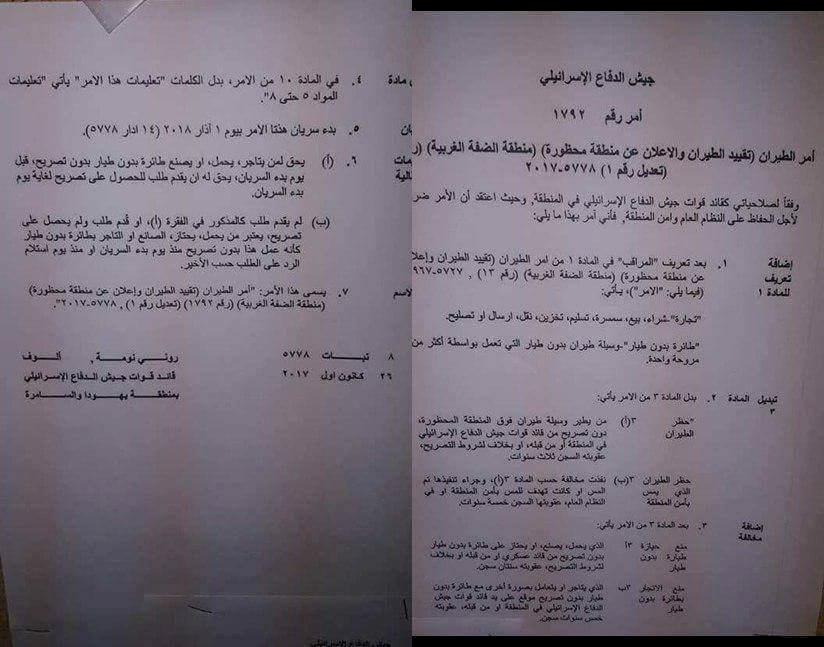 جيش الدفاع الإسرائيلي
أمر رقم ١٧٩٢
أمر الطيران (تقييد الطيران والاعلان عن منطقة محظورة) (منطقة الضفة الغربية) (ر
(تعديل رقم ١) ٥٧٧٨-٢٠١٧
وفقاً لصلاحياتي كقائد قوات جيش الدفاع الإسرائيلي في المنطقة, وحيث اعتقد أن الأمر ضر
لأجل الحفاظ على النظام العام وامن المنطقة, فأني آمر بهذا ما يلي:
إضافة ١. بعد تعريف "المراقب" في المادة ١ من امر الطيران (تقييد الطيران وإعلا
تعريف عن منطقة محظورة) (منطقة الضفة الغربية) (رقم ١٣) , ٥٧٢٧-٩٦٧
للمادة ١ (فيما يلي: "الامر"), يأتي:
"تجارة"-شراء, بيع, سمسرة, تسليم, تخزين, نقل, ارسال او تصليح.
"طائرة بدون طيار"-وسيلة طيران بدون طيار التي تعمل بواسطة أكثر من
مروحة واحدة.
تبديل المادة ٢. بدل المادة ٣ من الامر يأتي:
٣
"حظر ٣(أ) من يطير وسيلة طيران فوق المنطقة المحظورة,
الطيران دون تصريح من قائد قوات جيش الدفاع الإسرائيلي
في المنطقة أو من قبله, او بخلاف لشروط التصريح,
عقوبته السجن ثلاث سنوات.
حظر الطيران ٣(ب) نفذت مخالفة حسب المادة ٣(أ), وجراء تنفيذها تم
الذي يمس المس او كانت تهدف للمس بأمن المنطقة او في
بأمن المنطقة النظام العام, عقوبتها السجن خمسة سنوات.
إضافة ٣. بعد المادة ٣ من الامر يأتي:
مخالفة
منع حيازة ٣أ الذي يحمل, يصنع, او يحتاز على طائرة بدون طيار
طائرة بدون بدون تصريح من قائد عسكري او من قبله او بخلاف
طيار لشروط التصريح, عقوبته سنتان سجن.
منع الاتجار ٣ب الذي يتاجر او يتعامل بصورة أخرى مع طائرة بدون
بطائرة بدون طيار بدون تصريح موقع على يد قائد قوات جيش
طيار الدفاع الإسرائيلي في المنطقة او من قبله, عقوبته
خمس سنوات سجن.
مادة ٤. في المادة ١٠ من الامر, بدل الكلمات "تعليمات هذا الامر" يأتي "تعليمات
المواد ٥ حتى ٨".
٥. بدء سريان هذتا الامر بيوم ١ آذار ٢٠١٨ (١٤ ادار ٥٧٧٨).
٦. (أ) يحق لمن يتاجر, يحمل, او يصنع طائرة بدون طيار بدون تصريح, قبل
يوم بدء السريان, يحق له ان يقدم طلب للحصول على تصريح لغاية يوم
بدء السريان.
(ب) لم يقدم طلب كالمذكور في الفقرة (أ), او قُدم طلب ولم يحصل على
تصريح, يعتبر من يحمل, يحتاز, الصانع او التاجر بطائرة بدون طيار
كأنه عمل هذا بدون تصريح منذ يوم بدء السريان او منذ يوم استلام
الرد على الطلب حسب الأخير.
الاسم ٧. يسمى هذا الأمر: "أمر الطيران (تقييد الطيران وإعلان عن منطقة محظورة)
(منطقة الضفة الغربية) (رقم ١٧٩٢) (تعديل رقم ١) , ٥٧٧٨-٢٠١٧".
٨ تبات ٥٧٧٨ روني نومة, ألوف
٢٦ كانون اول ٢٠١٧ قائد قوات جيش الدفاع الإسرائيلي
بمنطقة يهودا والسامرة
جيش الدفاع الإسرائيلي